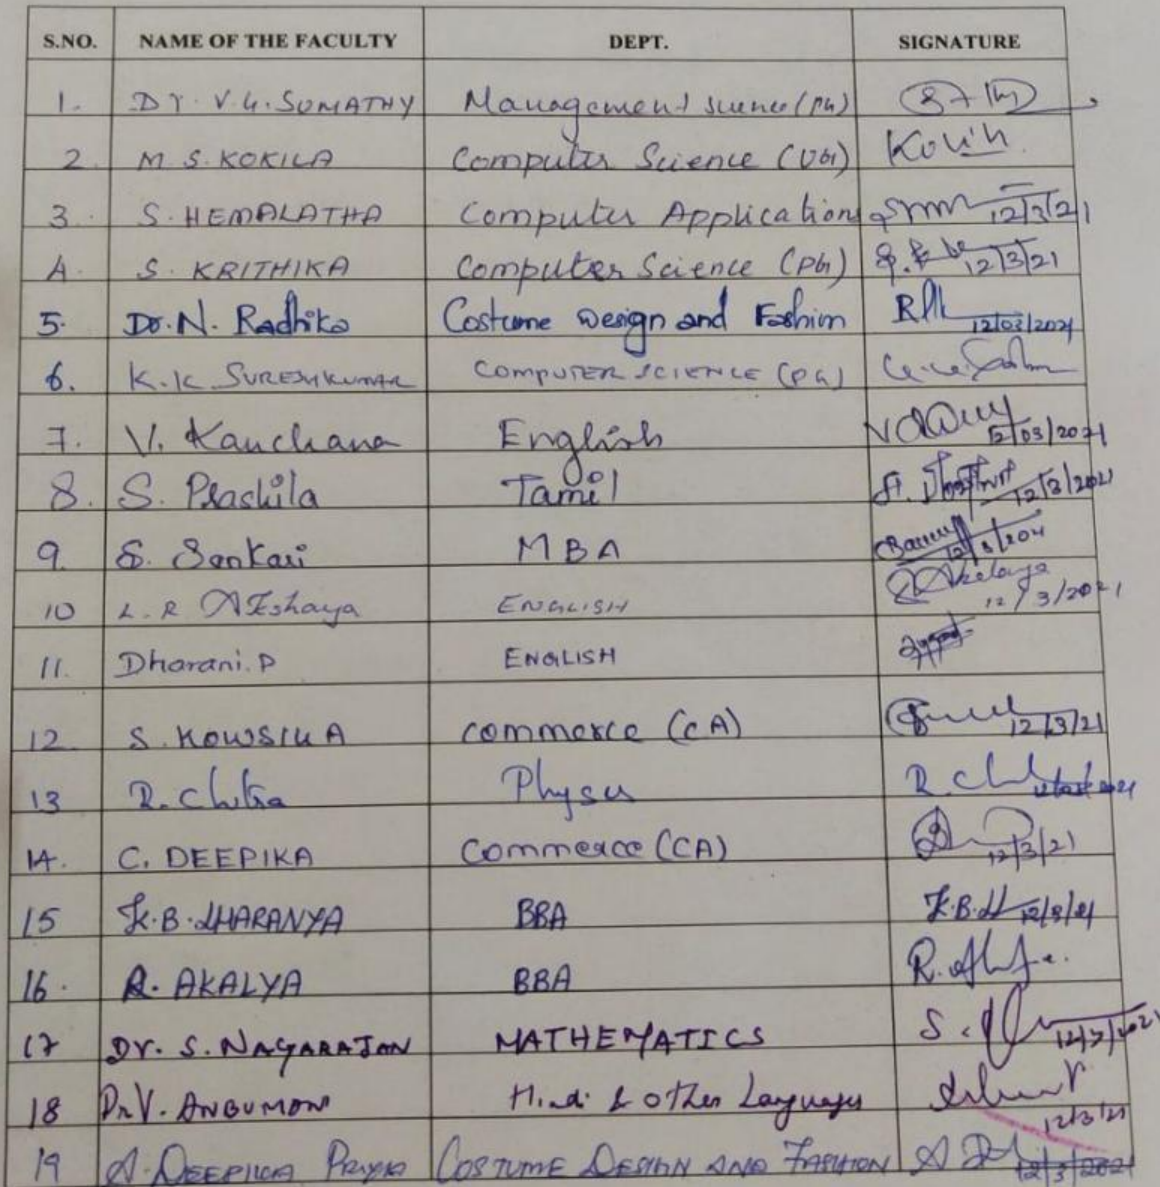 S.NO. NAME OF THE FACULTY DEPT. SIGNATURE
1. Dr. V.G. SUMATHY Management science (PG)
2 M. S. KOKILA Computer Science (UG)
3. S. HEMALATHA Computer Application 12/3/21
4. S. KRITHIKA Computer Science (PG) 12/3/21
5. Dr. N. Radhika Costume Design and Fashion 12/03/2021
6. K.K SURESHKUMAR COMPUTER SCIENCE (PG)
7. V. Kanchana English 12/03/2021
8. S. Tamil 12/3/2021
9. S. Sankari MBA
10 L. R Akshaya ENGLISH 12/3/2021
11. Dharani. P ENGLISH
12 S. KOWSIKA Commerce (CA) 12/3/21
13 R. Chitra R. Ch
14. C. DEEPIKA Commerce (CA) 12/3/21
15 K.B. DHARANYA BBA K.B. 12/3/21
16. R. AKALYA BBA
17 Dr. S. NAGARAJAN MATHEMATICS S. 12/3/2021
18 Dr V. ANBUMANI Hindi & other Languages 12/3/21
19 A. DEEPIKA PRIYA COSTUME DESIGN AND FASHION 12/3/2021